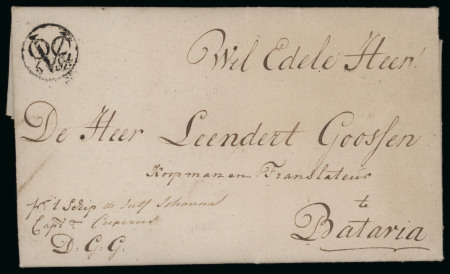 VOC
Wel Edele Heer!
De Heer Leendert Goossen
Koopman en Translateur
te
Batavia
pr. 't Schip de Juff Johanna
Capt.n Cuperus
D. G. G.